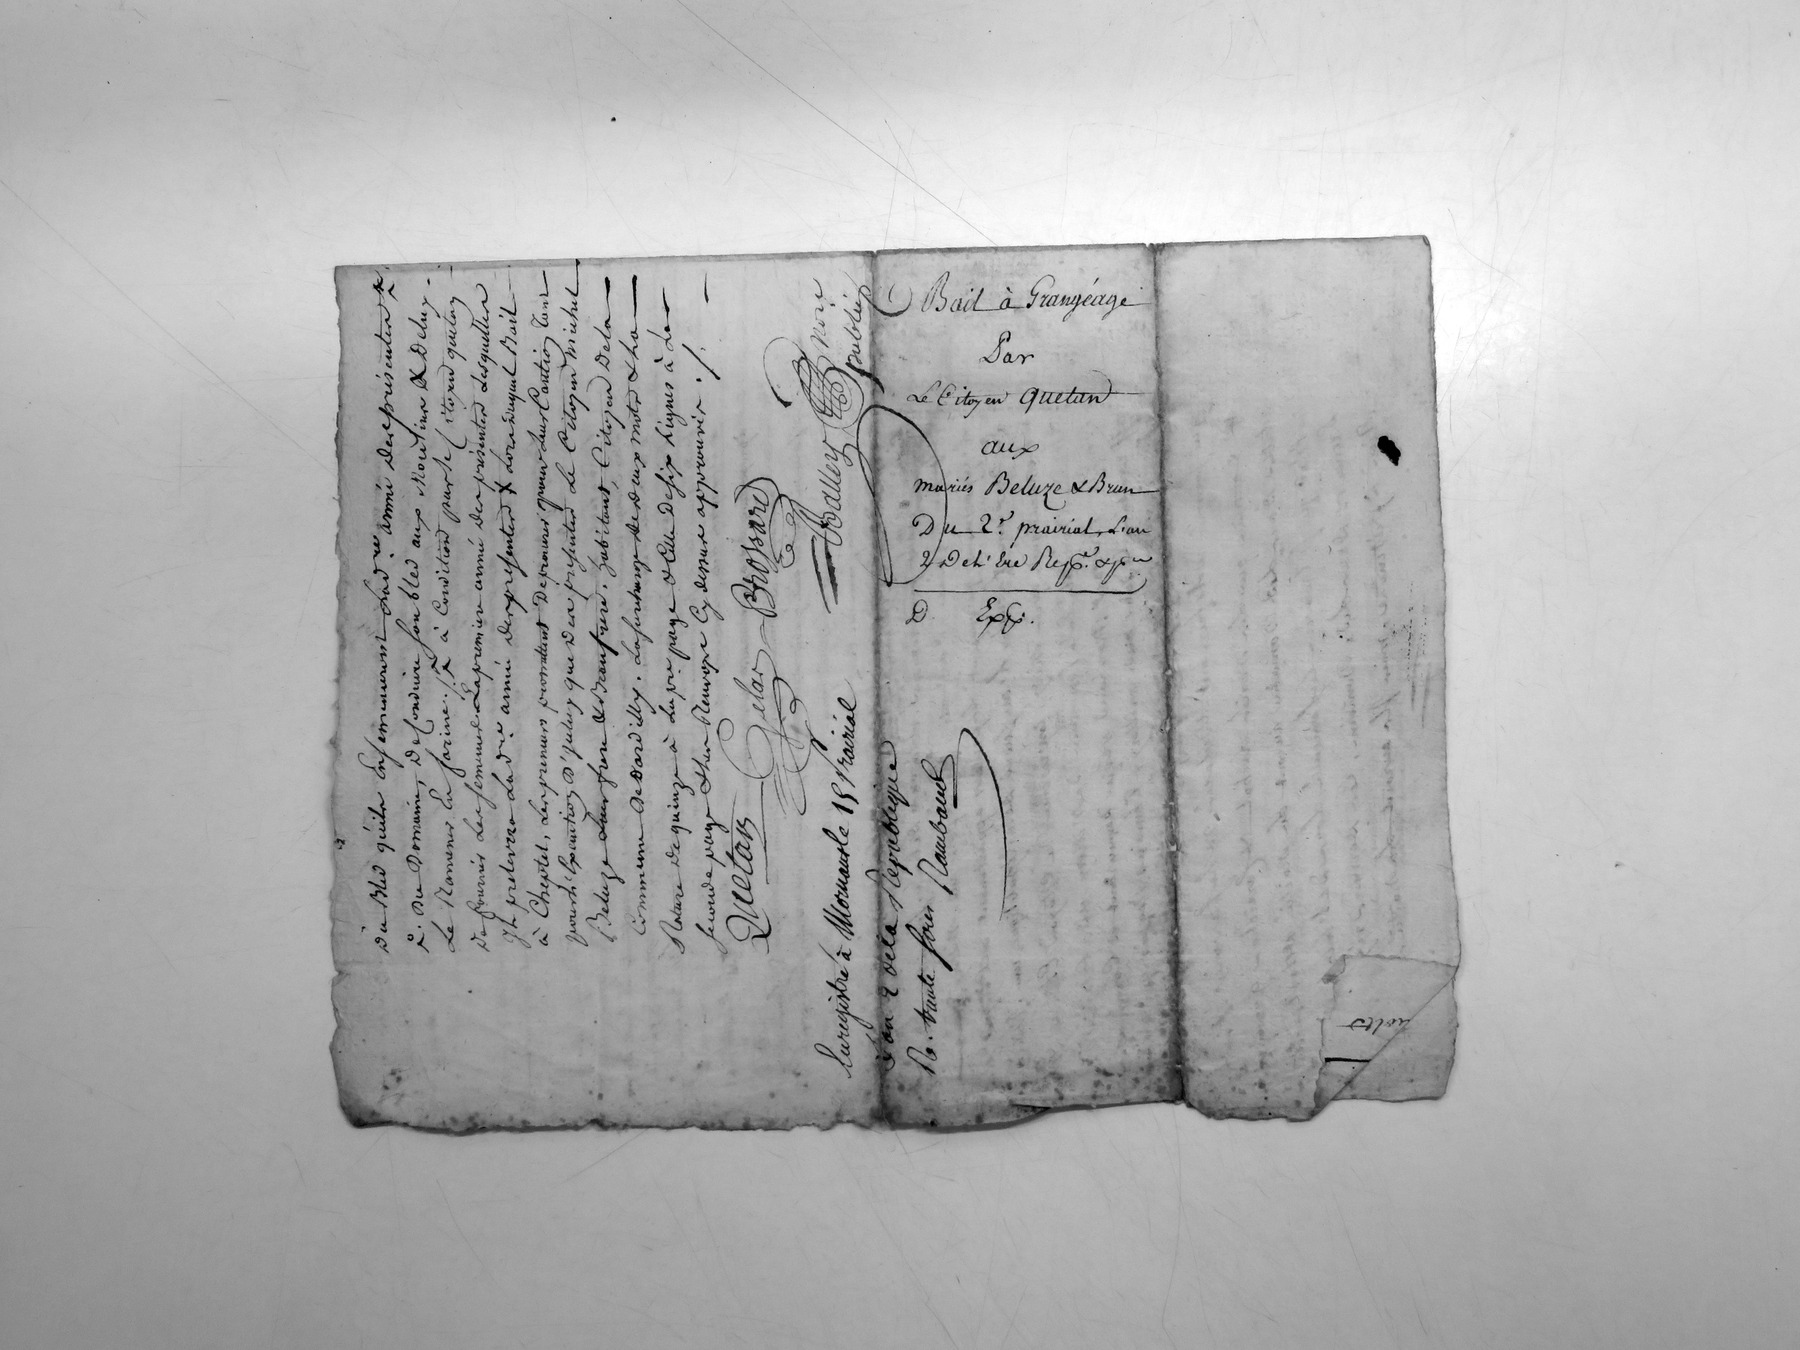 du Bled qu'ils Ensemenceront Lad. dre année des présentes
du Domaine, De Conduire son bled aux Moulins & De luy
Le Ramener En farine. à Condition par le Citoyen quetan
De fournir Les semences La premiere année des présentes Lesquelles
Il prelevera Lad. dre année des présentes Lors duquel Bail
à Cheptel, Les preneurs promettant De pour Leur Caution tant
pour l'Exécution D'iceluy que des présentes Le Citoyen michel
Beluze Leur frere & Beaufrere. habitant, Citoyen De la
Commune De Dardilly. La surcharge de deux mots & la
Rature de quinze à La pre page & Celle De six Lignes à La
seconde page & the Renvoye Cy dessus approuvés ./.
Quetan Gelas Brossard
Balley noire public
Enregistré à Mornant le 15 Prairial
L'an 2 de la Republique
R. trente sous Rambaud
Bail à Grangéage
Par
Le Citoyen Quetan
aux
mariés Beluze & Brun
Du 2.e prairial L'an
2 De l'Ere Rep.e
D Exp.